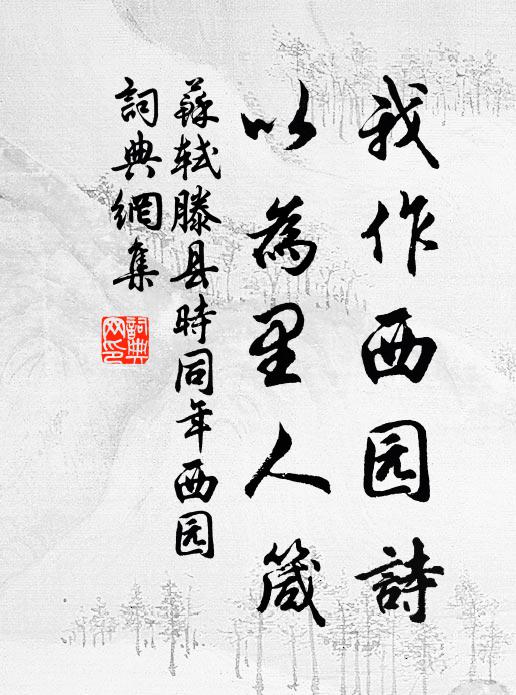 我作西园詩
以為里人箴
蘇轼滕县時同年西园
詞典網集
詞典网印